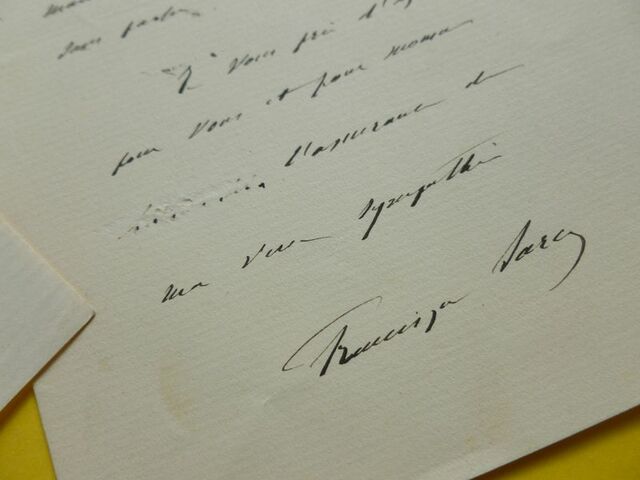 sans parler
Je vous prie d'a
pour vous et pour mama
l'assurance de
ma vive sympathie
Francisque Sarcey